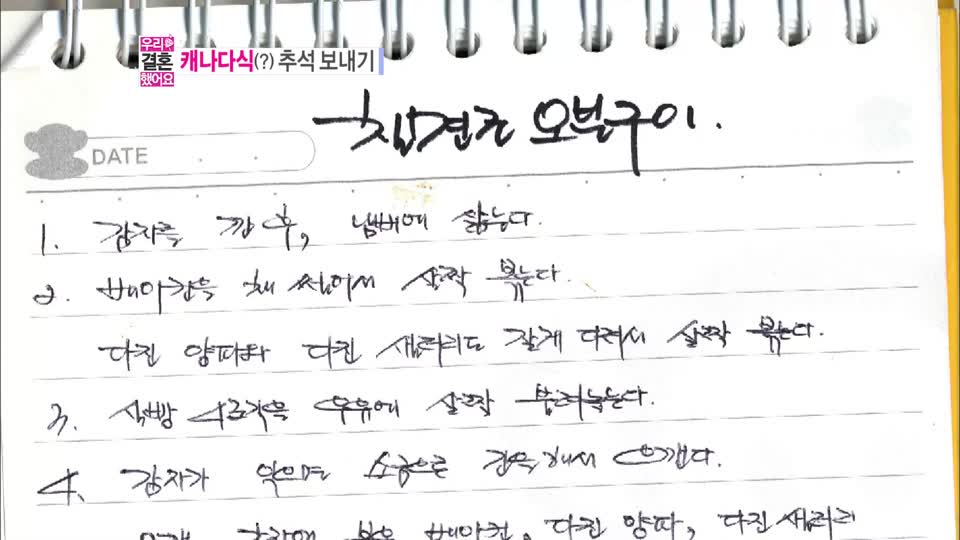 우리
결혼
했어요
캐나다식(?) 추석 보내기
칠면조 오븐구이.
DATE
1. 감자를 깐 후, 냄비에 삶는다.
2. 베이컨을 채 썰어서 살짝 볶는다.
다진 양파와 다진 샐러리도 잘게 다져서 살짝 볶는다.
3. 식빵 4조각을 우유에 살짝 불려놓는다.
4. 감자가 익으면 소금으로 간을 해서 으깬다.
으깬 감자에 볶은 베이컨, 다진 양파, 다진 샐러리